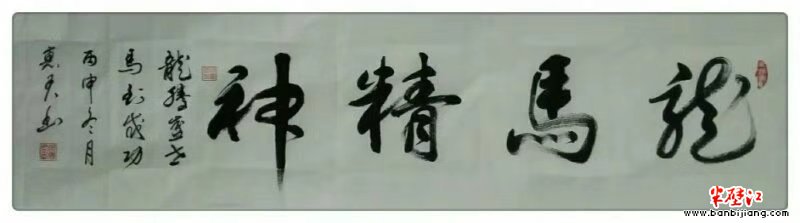 龍馬精神
龍騰盛世
馬到成功
丙申冬月
半壁江
www.banbijiang.com